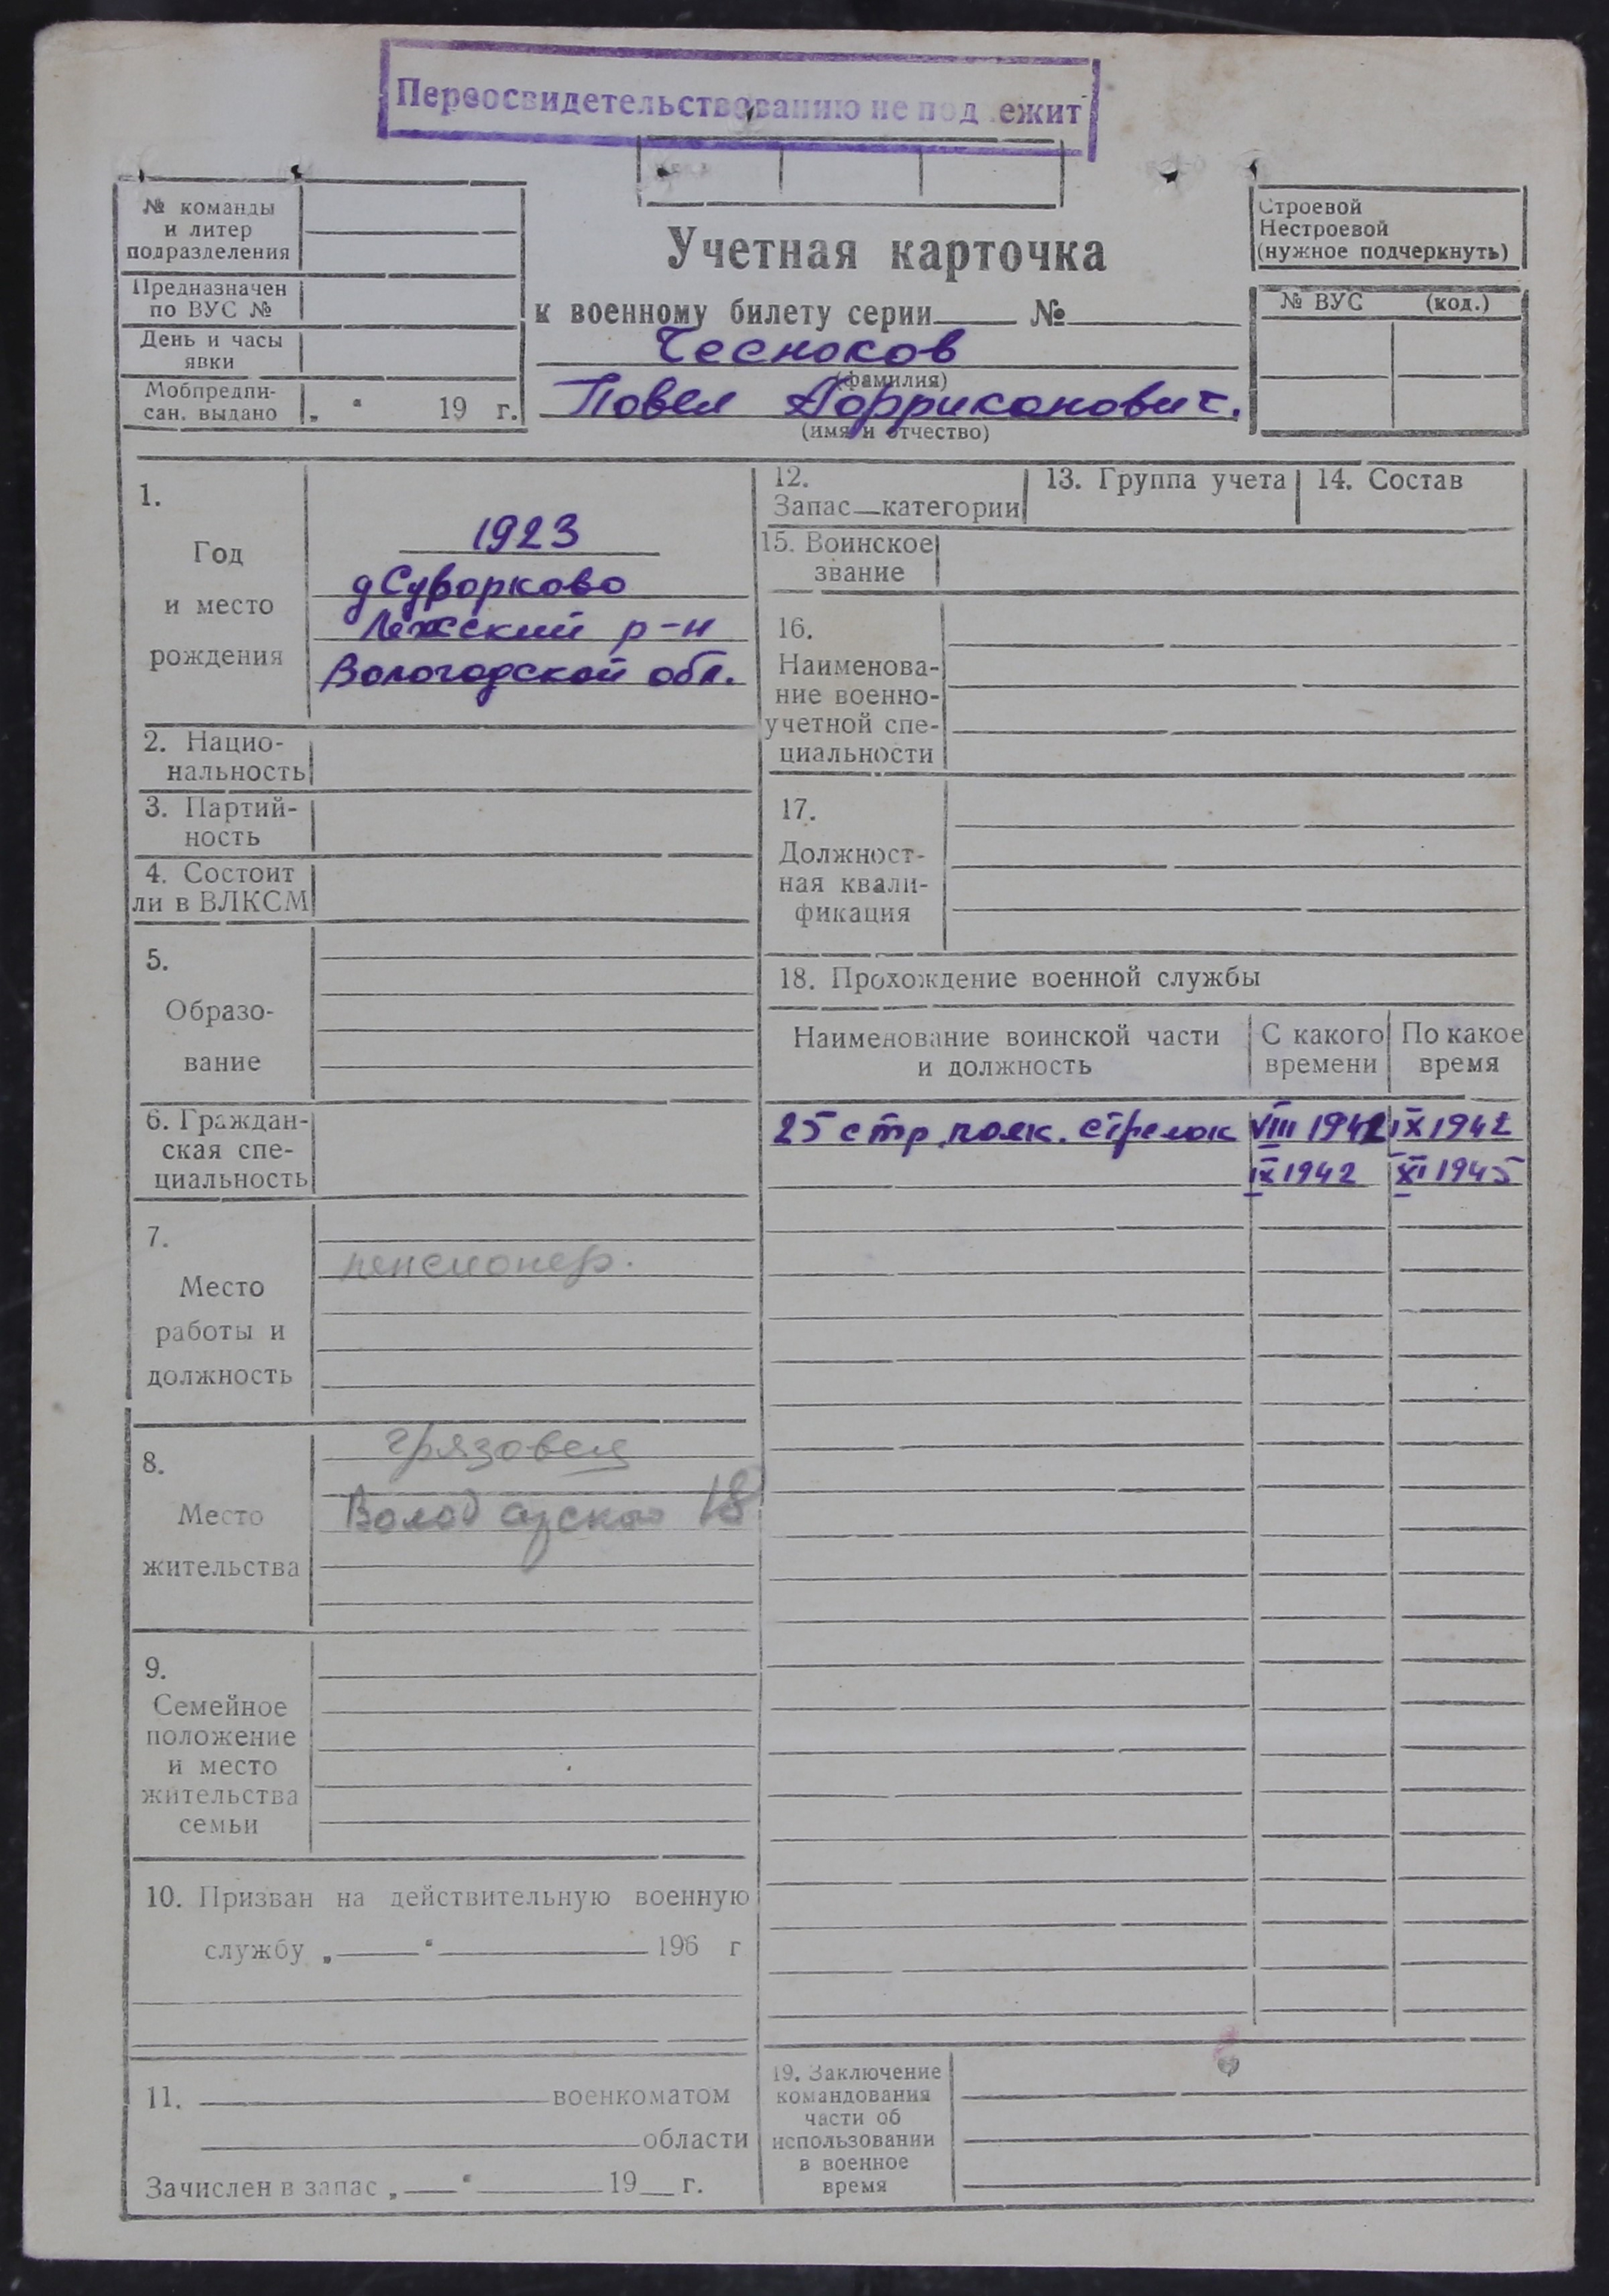 Переосвидетельствованию не под ежит
№ команды
и литер
подразделения
Предназначен
по ВУС №
День и часы
явки
Мобпредпи-
сан. выдано „ “ 19 г.
Учетная карточка
к военному билету серии №
Чесноков
(фамилия)
Павел Аффриканович.
(имя и отчество)
Строевой
Нестроевой
(нужное подчеркнуть)
№ ВУС (код.)
1.
Год
и место
рождения
1923
д Суворково
Лежский р-н
Вологодской обл.
2. Нацио-
нальность
3. Партий-
ность
4. Состоит
ли в ВЛКСМ
5.
Образо-
вание
6. Граждан-
ская спе-
циальность
7.
Место
работы и
должность
пенсионер.
8.
Место
жительства
Грязовец
Володарского 18
9.
Семейное
положение
и место
жительства
семьи
10. Призван на действительную военную
службу „ “ 196 г
11. военкоматом
области
Зачислен в запас „ “ 19 г.
12.
Запас—категории
13. Группа учета
14. Состав
15. Воинское
звание
16.
Наименова-
ние военно-
учетной спе-
циальности
17.
Должност-
ная квали-
фикация
18. Прохождение военной службы
Наименование воинской части
и должность
С какого
времени
По какое
время
25 стр. полк. стрелок VIII 1942 IX 1942
IX 1942 XI 1945
19. Заключение
командования
части об
использовании
в военное
время